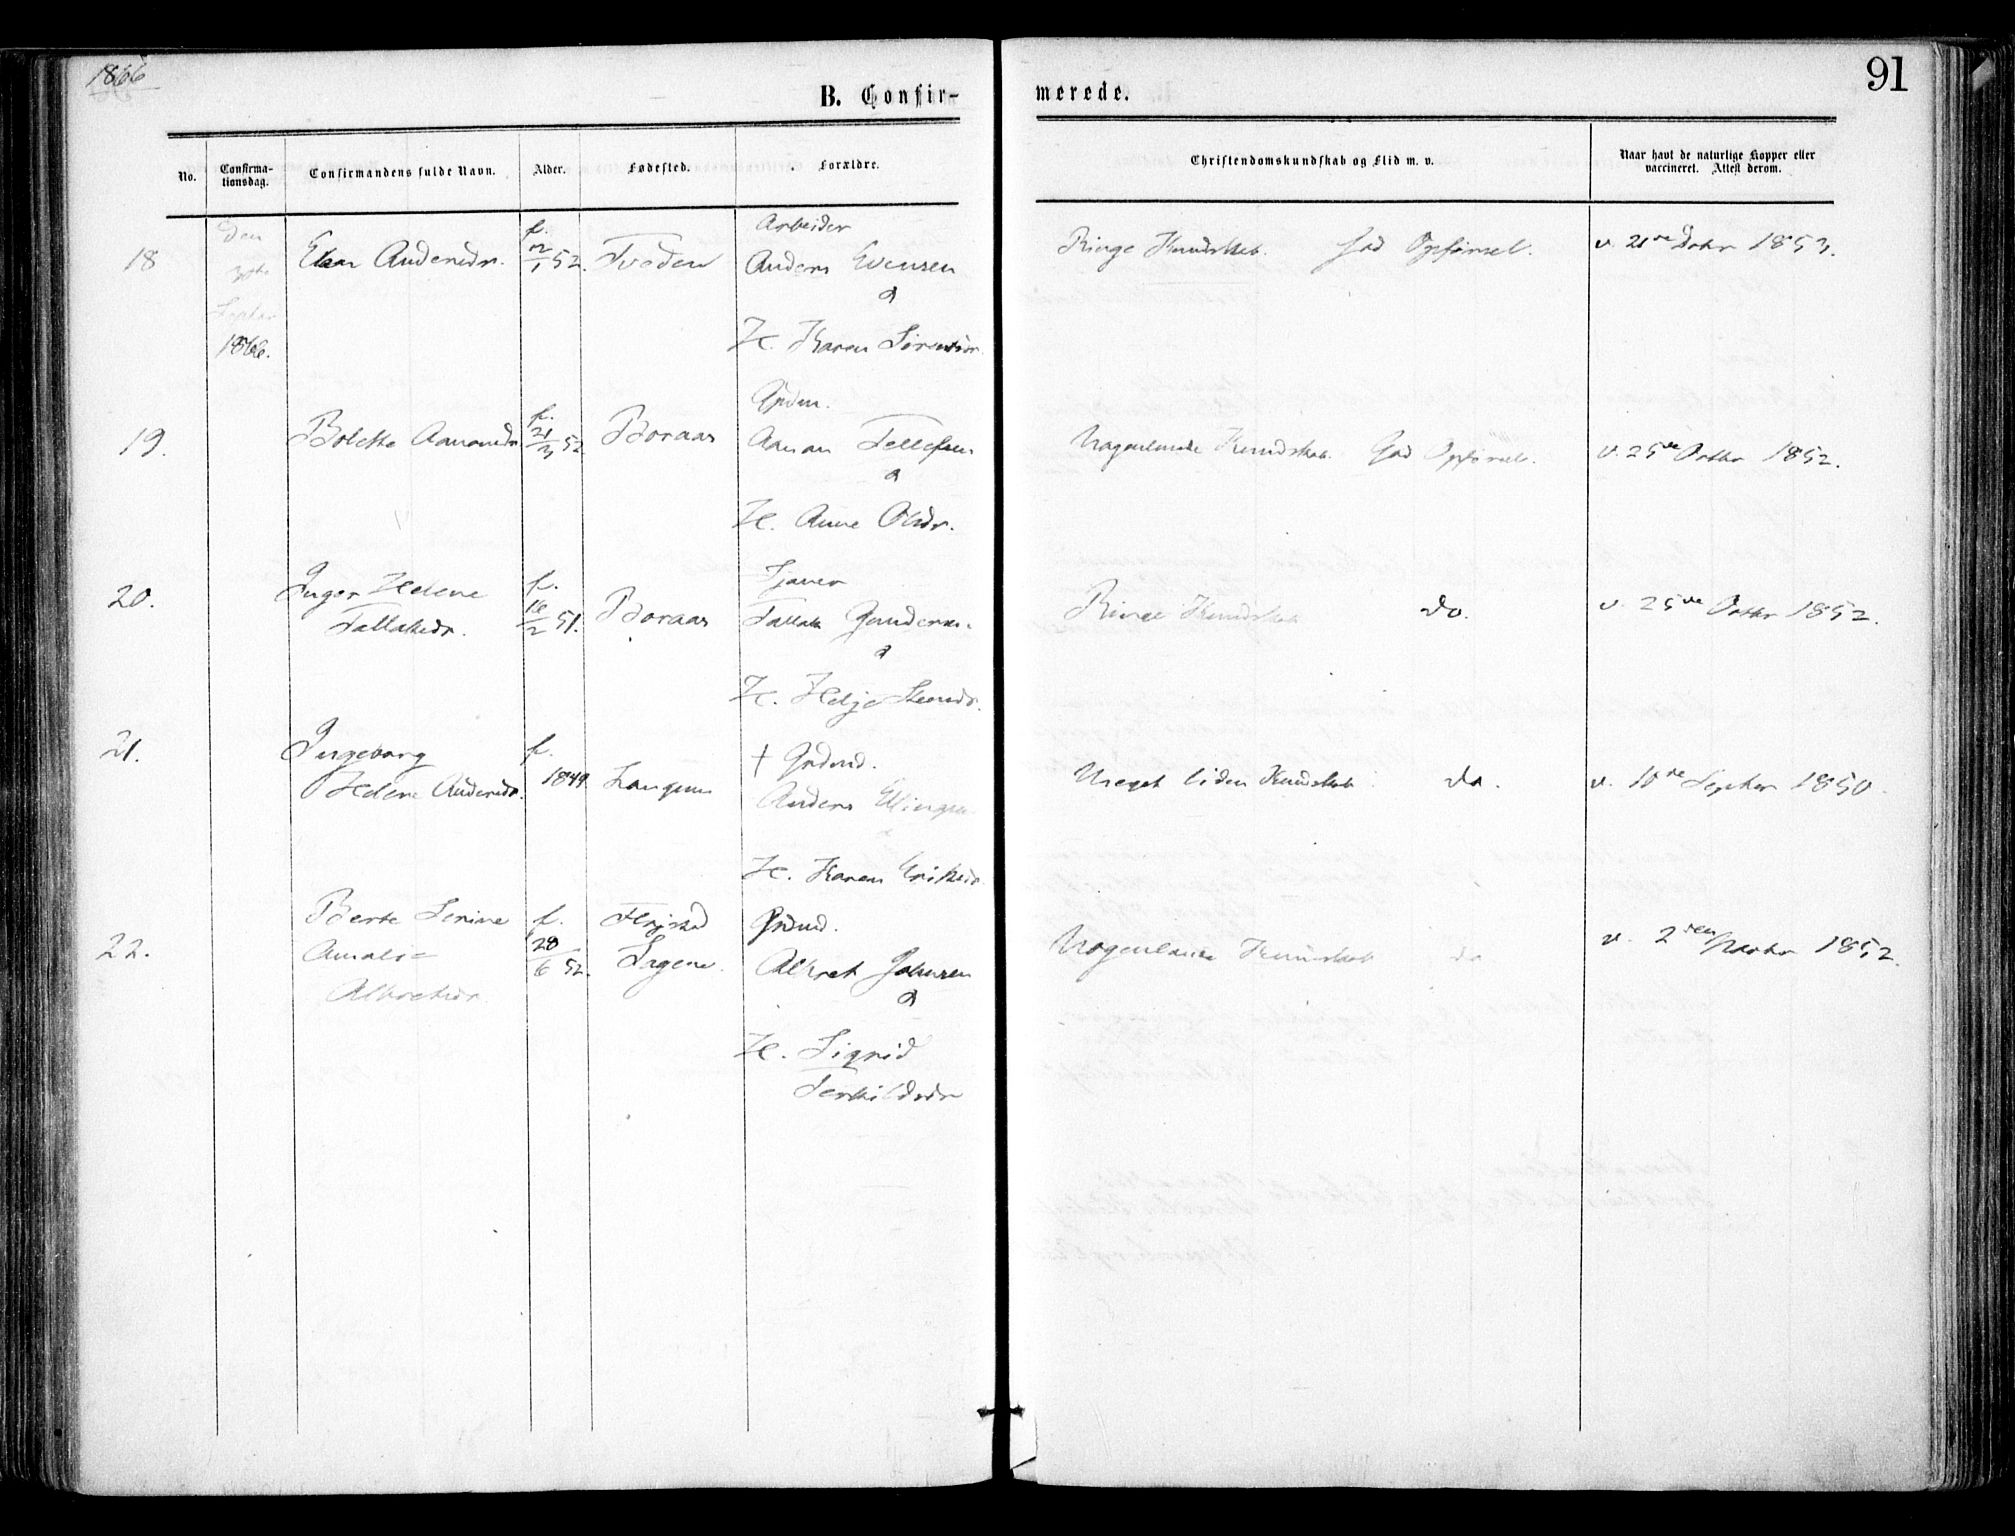 1866
91
B. Confir-
merede.
No.
Confirma-
tionsdag.
Confirmandens fulde Navn.
Alder.
Fødested.
Forældre.
Christendomskundskab og Flid m. v.
Naar havt de naturlige Kopper eller
vaccineret. Attest derom.
18
Den
Septbr
1866.
Andersdr.
f.
2/1 52.
Tveden
Arbeider
Anders Evensen
&
H. Karen Sørensdr.
Ringe Kundskab. God Opførsel.
v. 21de Octbr 1853.
19.
Bolette Aanonsdr.
f.
21/3 52
Boraas
Grdm.
Aanon Tellefsen
&
H. Anne Olsdr.
Nogenlunde Kundskab. God Opførsel.
v. 25de Octbr 1852.
20.
Inger Helene
Tallaksdr.
f.
16/2 51.
Boraas
Tjener
Tallak Gunders.
&
H. Helje
Ringe Kundskab
do.
v. 25de Octbr 1852.
21.
Ingeborg
Helene Andersdr.
f.
1849.
Langum
† Grdmd.
Anders Ellingsen
H. Karen Eriksdr.
Meget liden Kundskab.
do.
v. 10de Septbr 1850.
22.
Berte Serine
Amalie
Albretsdr.
f.
28/6 52.
Flejstad
Sagene.
Grdmd.
Albret Johnsen
&
H. Sigrid
Terkildsdr
Nogenlunde Kundskab
do
v. 2den 1852.